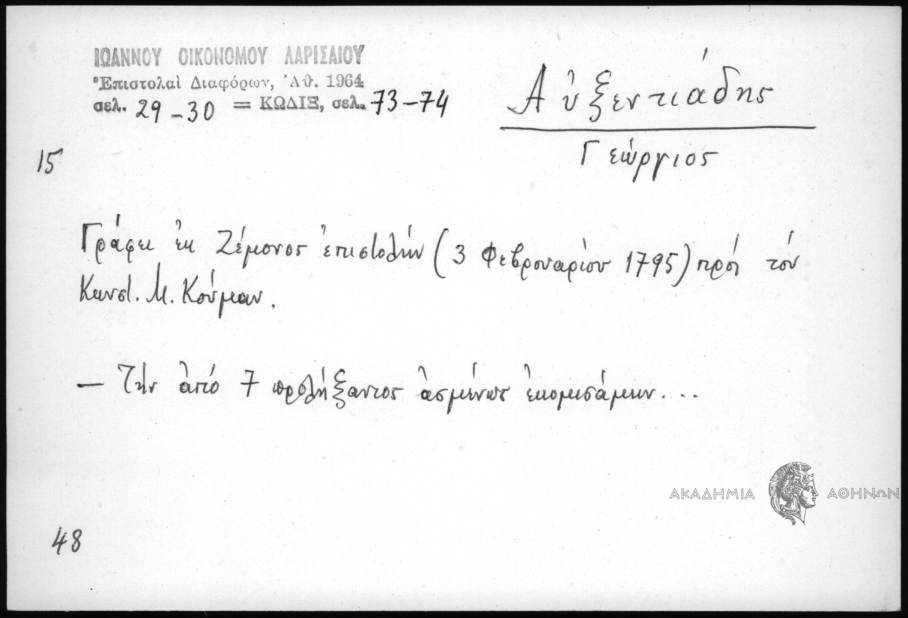 ΙΩΑΝΝΟΥ ΟΙΚΟΝΟΜΟΥ ΛΑΡΙΣΑΙΟΥ
Ἐπιστολαὶ Διαφόρων, Ἀθ. 1964
σελ. 29-30 = ΚΩΔΙΞ, σελ. 73-74
Αὐξεντιάδης
Γεώργιος
15
Γράφει ἐκ Ζέμονος ἐπιστολήν (3 Φεβρουαρίου 1795) πρός τόν
Κωνστ. Μ. Κούμαν.
— Τήν ἀπό 7 προλήξαντος ἀσμένως ἐκομισάμην...
ΑΚΑΔΗΜΙΑ ΑΘΗΝΩΝ
48